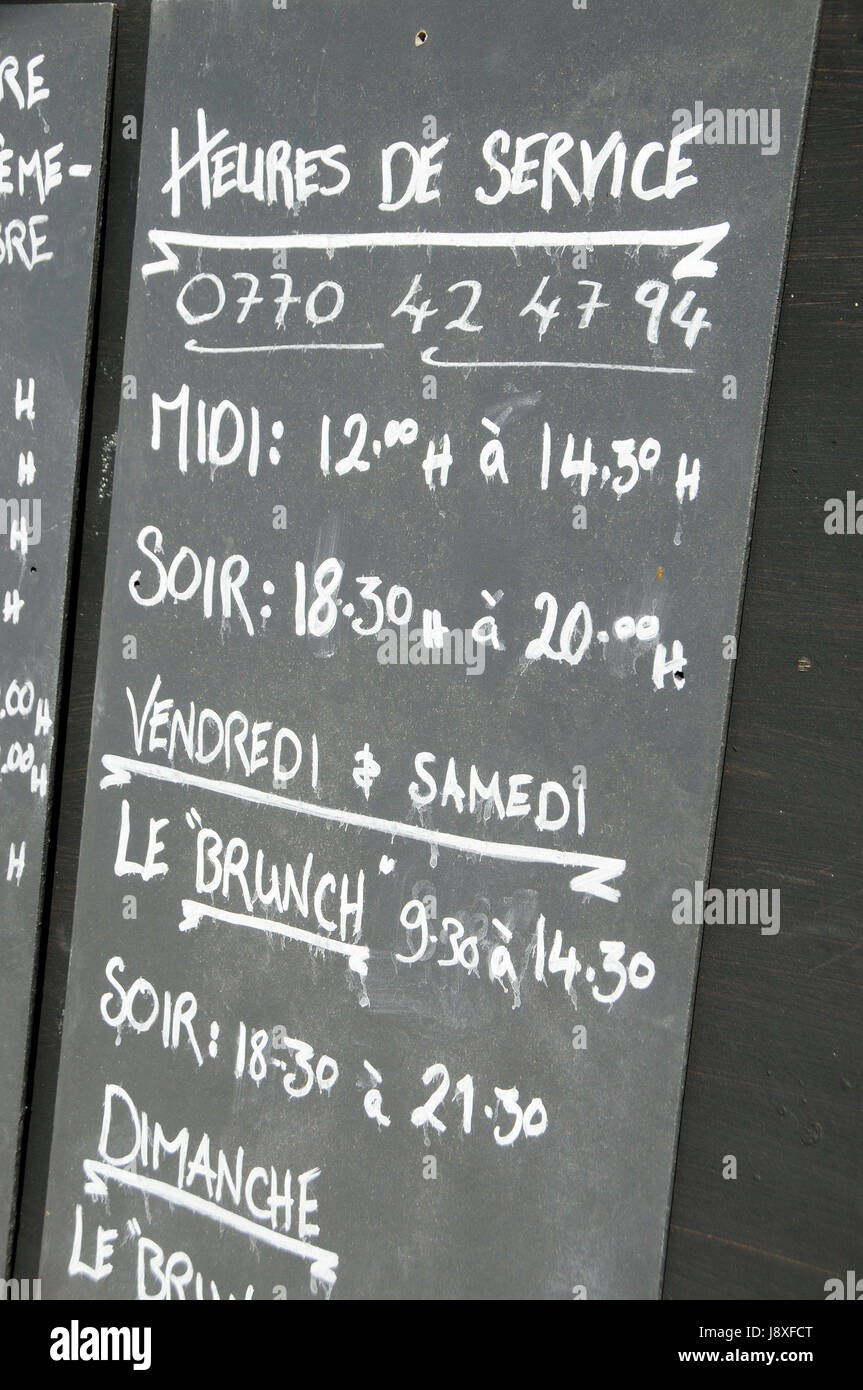 HEURES DE SERVICE
0770 42 47 94
MIDI: 12.00 H à 14.30 H
SOIR: 18.30 H à 20.00 H
VENDREDI & SAMEDI
LE "BRUNCH" 9.30 à 14.30
SOIR: 18-30 à 21.30
DIMANCHE
LE "BRUN
RE
ÈME-
BRE
H
H
H
H
.00 H
.00 H
H
alamy stock photo
Image ID: J8XFCT
www.alamy.com